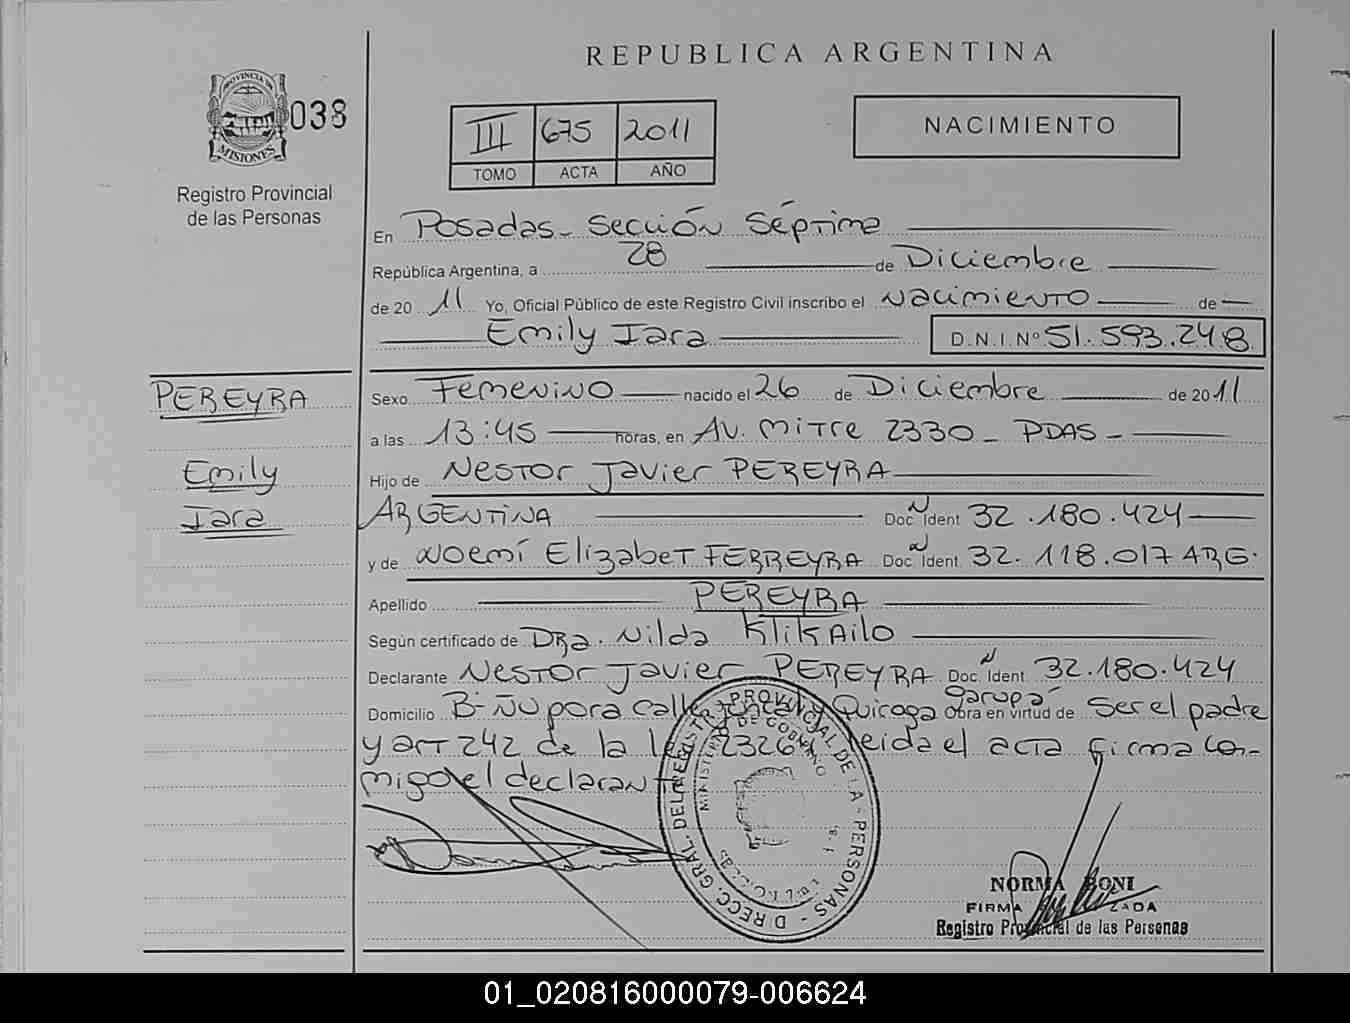 REPUBLICA ARGENTINA
PROVINCIA DE
MISIONES
038
Registro Provincial
de las Personas
III 675 2011
TOMO ACTA AÑO
NACIMIENTO
En Posadas - Sección Séptima
República Argentina, a 28 de Diciembre
de 2011 Yo, Oficial Público de este Registro Civil inscribo el Nacimiento de
Emily Iara D.N.I.Nº 51.593.248
PEREYRA
Emily
Iara
Sexo Femenino nacido el 26 de Diciembre de 2011
a las 13:45 horas, en Av. Mitre 2330 - PDAS -
Hijo de Nestor Javier PEREYRA
ARGENTINA Doc. Ident N 32.180.424
y de Noemí Elizabet FERREYRA Doc. Ident. N 32.118.017 ARG.
Apellido PEREYRA
Según certificado de Dra. Nilda Klikailo
Declarante Nestor Javier PEREYRA Doc. Ident. N 32.180.424
Domicilio B- Ñu pora calle Quiroga Garupá Obra en virtud de Ser el padre
y art 242 de la 2326 leida el acta firma con-
migo el declarante
DIRECC. GRAL. DEL REGISTR. PROVINCIAL DE LA - PERSONAS -
MINISTERIO DE GOBIERNO
NORMA BONI
FIRMA ZADA
Registro Provincial de las Personas
01_020816000079-006624